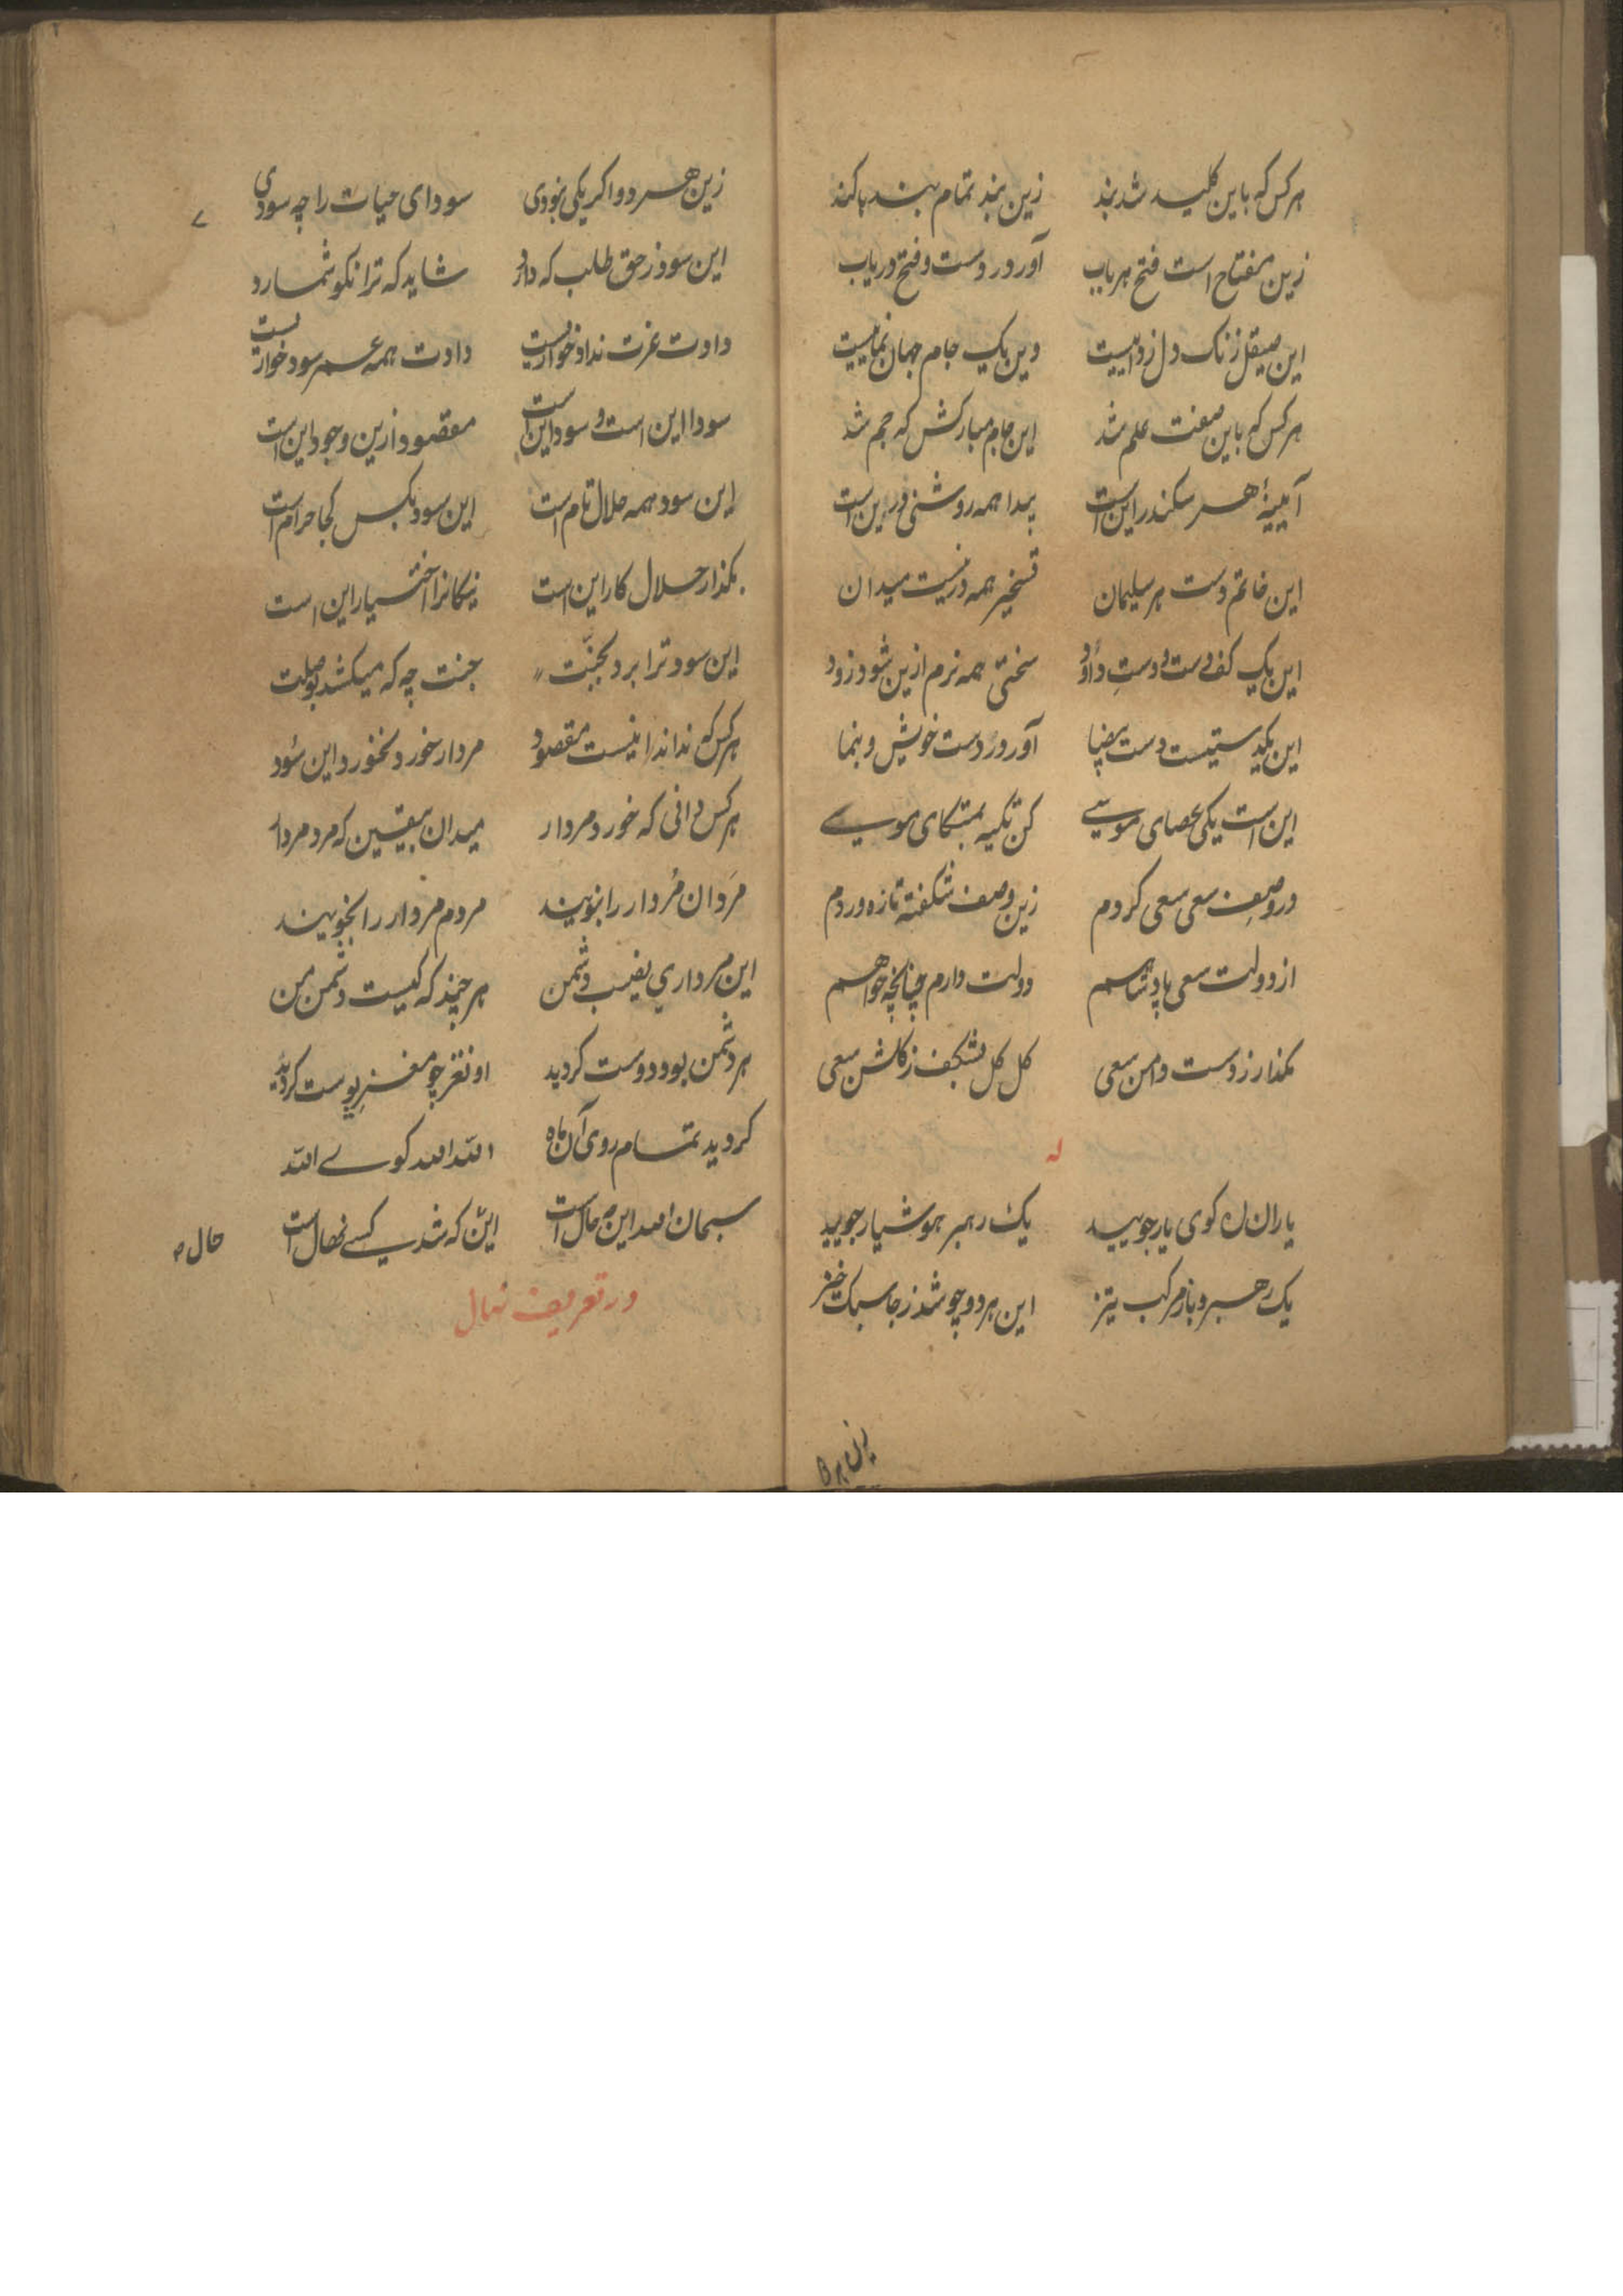 هر کس که باین کلید شد بند زین بند تمام بند پا کند
زین مفتاح است فتح هر باب آور در دست و فتح دریاب
این صیقل زنک دل زداییست وین یک جام جهان نماییست
هر کس که باین صفت علم شد این جام مبارکش که جم شد
آیینهٔ هر سکندر این است پیدا همه روشنی درین است
این خاتم دست هر سلیمان تسخیر همه درنیست میدان
این یک کف دست و دستِ داؤد سختی همه نرم ازین شود زود
این یکدستیست دست بیضا آور در دست خویش و بنما
این است یکی عصای موسی کن تکیه بمتکای موسے
در وصفِ سعی سعی کردم زین وصف شکفته تازه وردم
از دولت سعی پادشاهم دولت دارم چنانچه خواهم
مکذار ز دست دامن سعی کل کل بشکف ز کلشن سعی
له
یاران ره کوی یار جویید یک رهبر هوشیار جویید
یک رهبر و باز مرکب تیز این هر دو چو شد ز جا سبک خیز
زین هر دو اکر یکی نبودی سودای حیات را چه سودی
این سود ز حق طلب که دارد شاید که ترا نکو شمارد
دادت عزت نداد خواریست دادت همه عمر سود خواریست
سودا این است و سود این است مقصود ازین وجود این است
این سود همه حلال تام است این سود بکس کجا حرام است
بکذار حلال کار این است نیکانرا اختیار این است
این سود ترا برد بجنّت جنت چه که میکشد بوصلت
هر کس که نداند اینست مقصود مردار خورد نخورد این سُود
هر کس دانی که خورد مردار میدان بیقین که مرد مردار
مَردان مُردار را نبویند مردم مردار را نجویند
این مرداري نصیب دشمن هر چند که کیست دشمن من
هر دشمن بود دوست کردید او نغز چو مغزِ پوست کردید
کردید تمام روی آن ماه الله الله کوے الله
سبحان الله این چه حال است این که شد بکسے نهال است
حال
در تعریف نهال